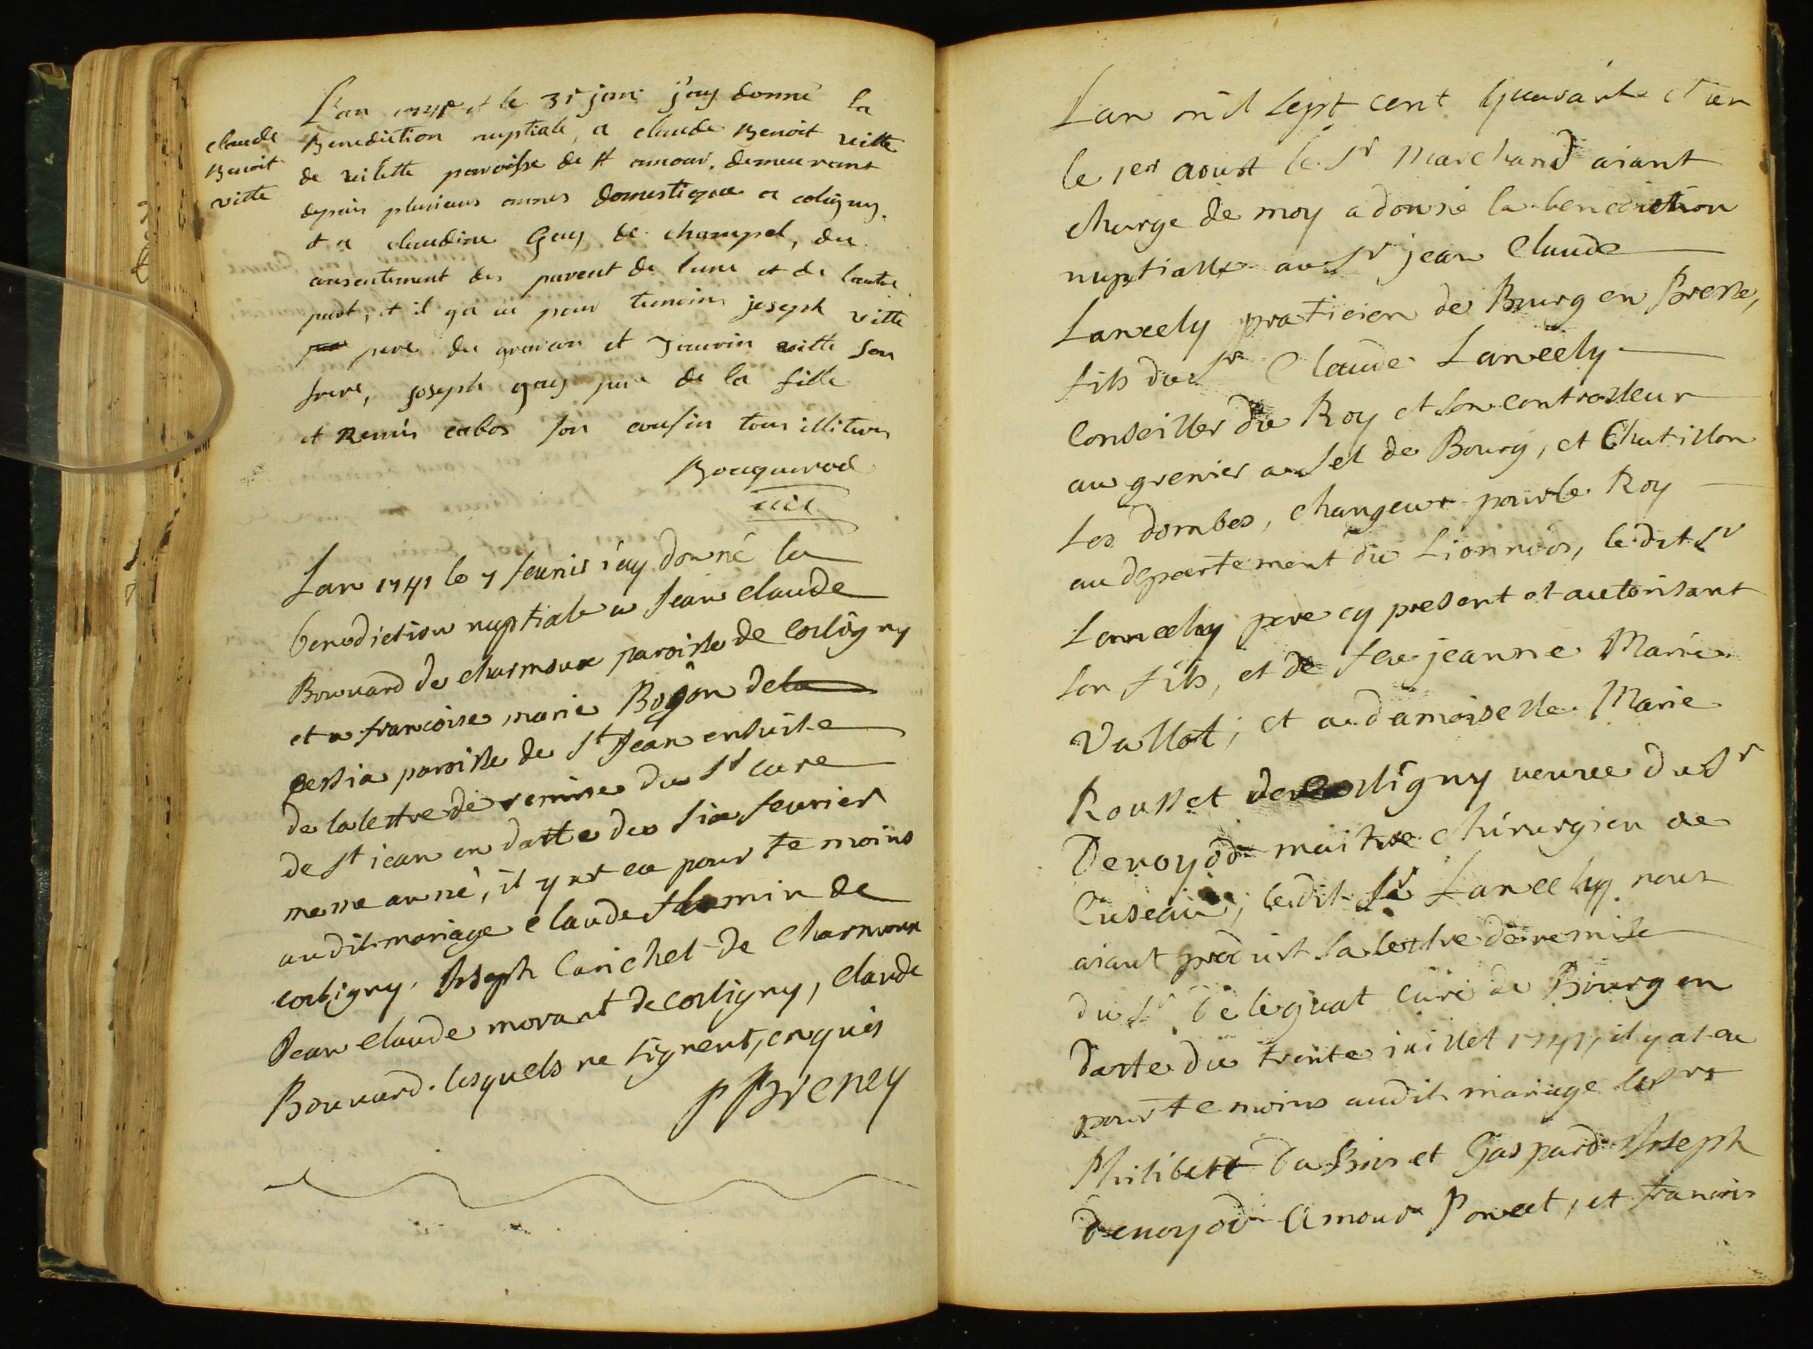 claude
Benoit
vitte
L'an 1741 et le 31 janv j'ay donné la
Benediction nuptiale, a claude Benoit vitte
de vilette paroisse de st amour, demeurant
depuis plusieurs annes domestique a coligny.
et a claudine Gay de champel, du
consentement des parent de lune et de lautre
part, et il y a eu pour temoins joseph vitte
pere du garcon et vitte son
frere, joseph gay pere de la fille
et Remis cabos son cousin tous illiteres
Bouquerod
Lan 1741 le 7 feurier i'ay donné la
benediction nuptiale a Jean claude
Bouuard de charmoux paroisse de Colligny
et a francoise marie Bojon de
paroisse de St Jean ensuite
de la lettre de remise du Sr cure
de St iean en datte du six feurier
meme année, il y at eu pour temoins
audit mariage claude de
colligny. Joseph Canichet de Charmoux
Jean Claude morant de colligny, Claude
Bouuard. lesquels ne signent, enquis
P Breney
Lan mil sept cent quarante et un
le 1er aoust le Sr Marchand aiant
charge de moy a donné la benediction
nuptialle au Sr jean Claude
Lancely praticien de Bourg en Bresse,
fils du Sr Claude Lancely
Conseiller du Roy et son controlleur
au grenier a sel de Bourg, et Chatillon
Les dombes, changeur pour le Roy
au departement du Lionnois, le dit Sr
Lancely pere cy present et autorisant
son fils, et de feue jeanne Marie
Vallot; et a damoiselle Marie
Rousset de Colligny veuve du Sr
Denoyod maitre chirurgien de
Cuseau; ledit Sr Lancely nous
aiant produit sa lettre de remise
du Sr curé de Bourg en
datte du trente iuillet 1741, il y at eu
pour temoins audit mariage les Srs
Philibert et Gaspard Joseph
Denoyod Amour Poncet, et francois